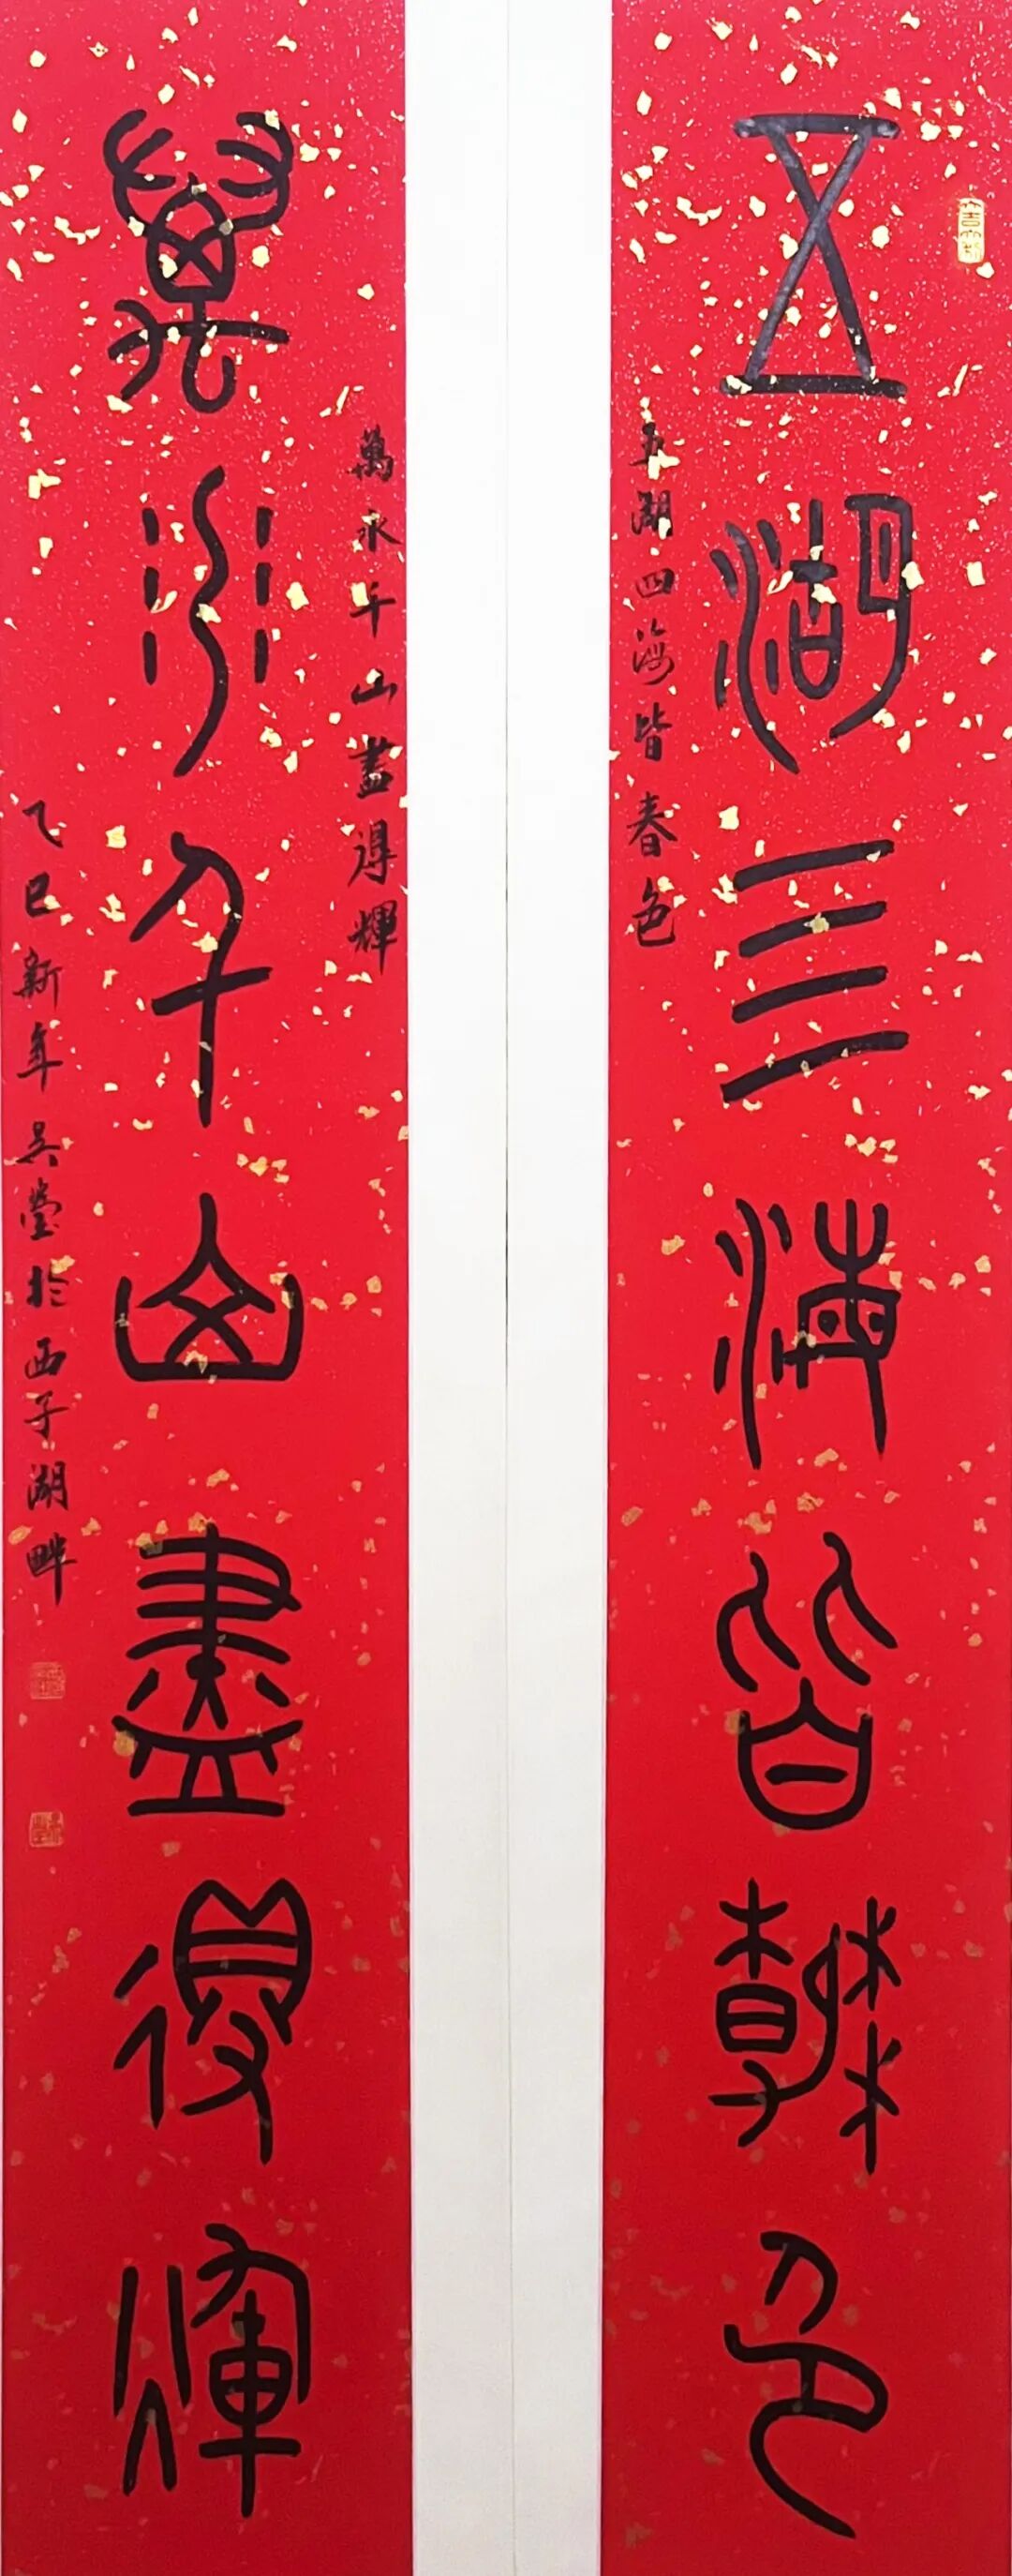 五湖四海皆春色
五湖四海皆春色
萬水千山盡得輝
萬水千山盡得輝
乙巳新年吳瑩於西子湖畔